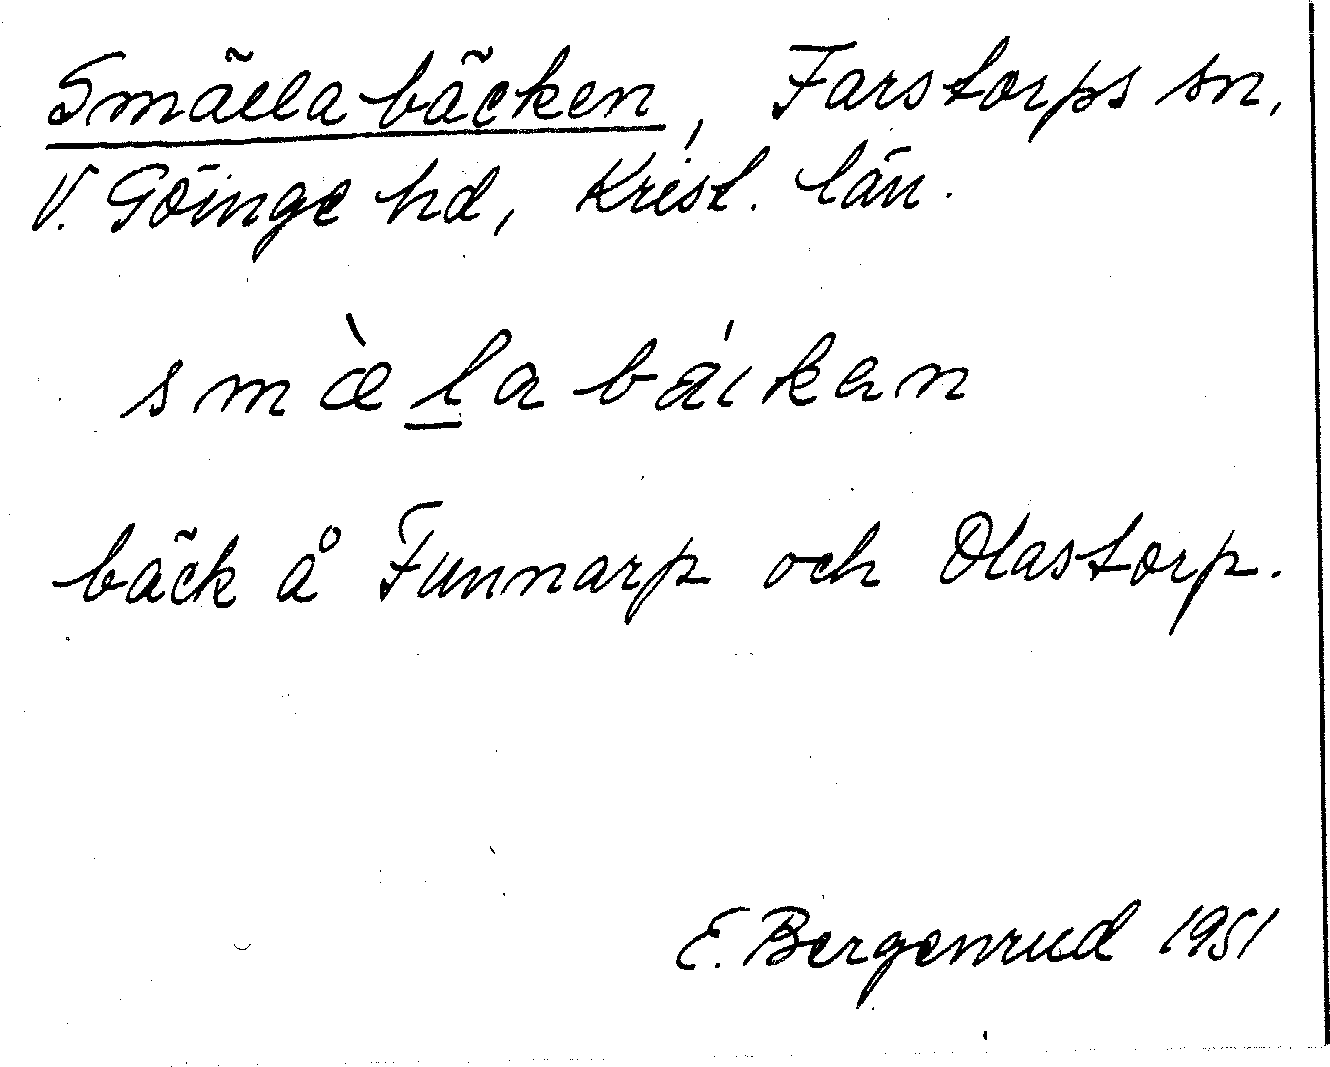 Smällabäcken, Farstorps sn,
V. Göinge hd, Krist. län.
smæ̀l̲abáıkan
bäck å Funnarp och Olastorp.
E. Bergenrud 1951